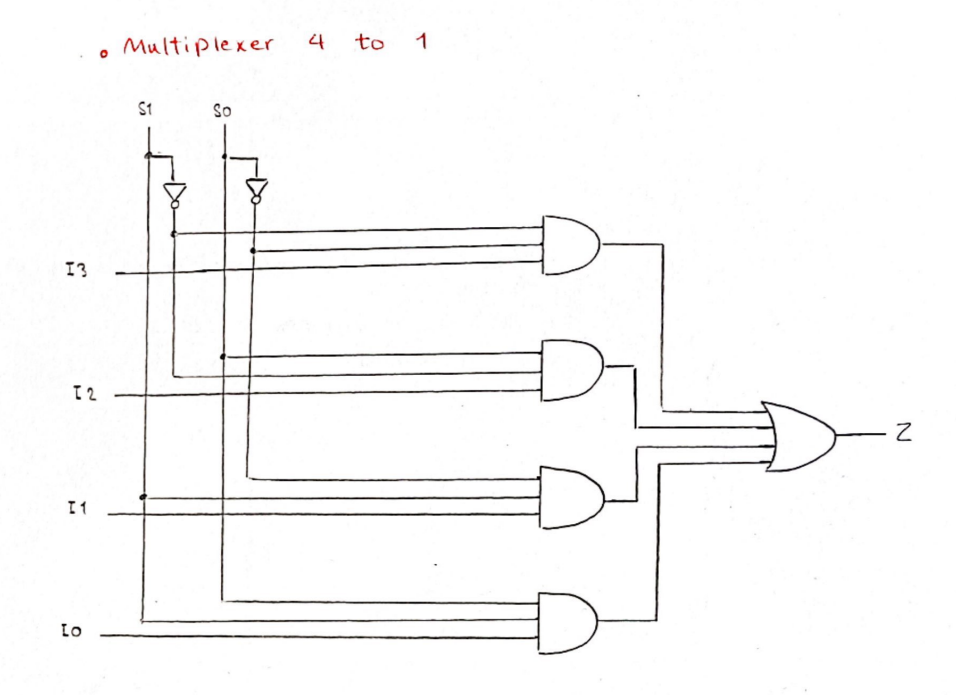 • Multiplexer 4 to 1
S1 S0
I3
I2
Z
I1
I0